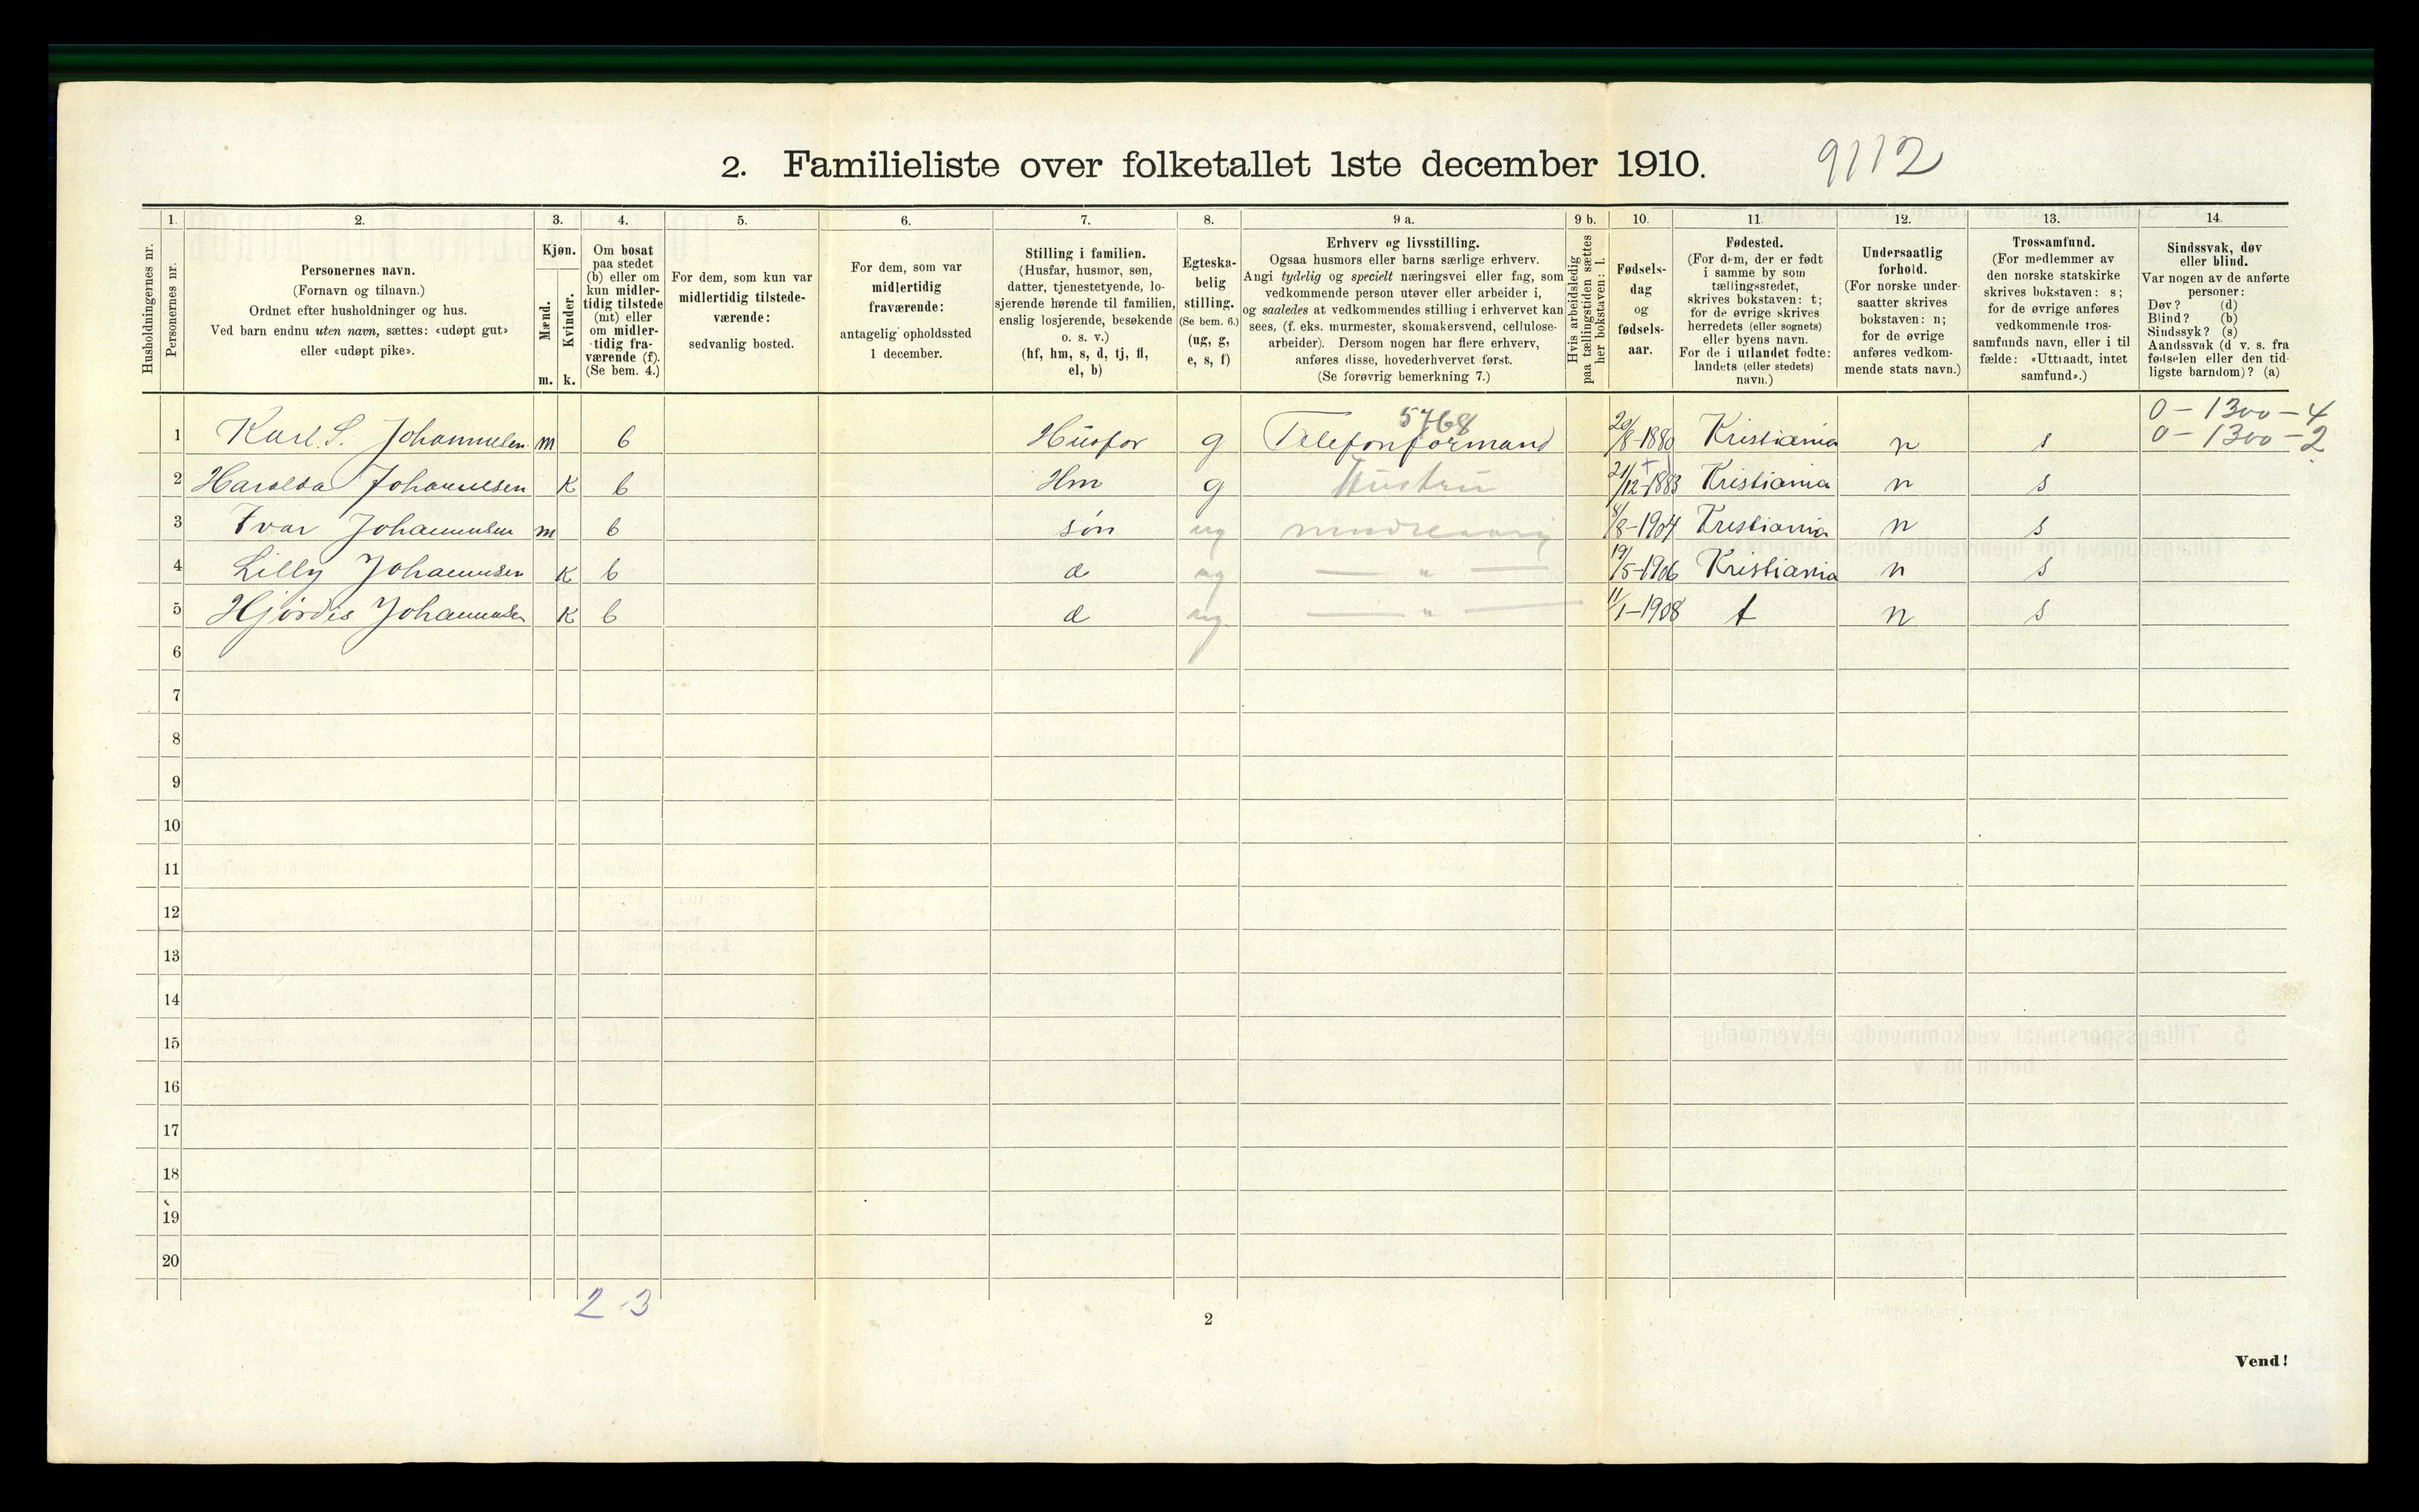 2. Familieliste over folketallet 1ste december 1910. 9112
Husholdningernes nr.
1.
Personernes nr.
2.
Personernes navn.
(Fornavn og tilnavn.)
Ordnet efter husholdninger og hus.
Ved barn endnu uten navn, sættes: «udøpt gut»
eller «udøpt pike».
3.
Kjøn.
Mænd.
Kvinder.
m. k.
4.
Om bosat
paa stedet
(b) eller om
kun midler-
tidig tilstede
(mt) eller
om midler-
tidig fra-
værende (f).
(Se bem. 4.)
5.
For dem, som kun var
midlertidig tilstede-
værende:
sedvanlig bosted.
6.
For dem, som var
midlertidig
fraværende:
antagelig opholdssted
1 december.
7.
Stilling i familien.
(Husfar, husmor, søn,
datter, tjenestetyende, lo-
sjerende hørende til familien,
enslig losjerende, besøkende
o. s. v.)
(hf, hm, s, d, tj, fl,
el, b)
8.
Egteska-
belig
stilling.
(Se bem. 6.)
(ug, g,
e, s, f)
9 a.
Erhverv og livsstilling.
Ogsaa husmors eller barns særlige erhverv.
Angi tydelig og specielt næringsvei eller fag, som
vedkommende person utøver eller arbeider i,
og saaledes at vedkommendes stilling i erhvervet kan
sees, (f. eks. murmester, skomakersvend, cellulose-
arbeider). Dersom nogen har flere erhverv,
anføres disse, hovederhvervet først.
(Se forøvrig bemerkning 7.)
9 b.
Hvis arbeidsledig
paa tællingstiden sættes
her bokstaven: l.
10.
Fødsels-
dag
og
fødsels-
aar.
11.
Fødested.
(For dem, der er født
i samme by som
tællingsstedet,
skrives bokstaven: t;
for de øvrige skrives
herredets (eller sognets)
eller byens navn.
For de i utlandet fødte:
landets (eller stedets)
navn.)
12.
Undersaatlig
forhold.
(For norske under-
saatter skrives
bokstaven: n;
for de øvrige
anføres vedkom-
mende stats navn.)
13.
Trossamfund.
(For medlemmer av
den norske statskirke
skrives bokstaven: s;
for de øvrige anføres
vedkommende tros-
samfunds navn, eller i til
fælde: «Uttraadt, intet
samfund».)
14.
Sindssvak, døv
eller blind.
Var nogen av de anførte
personer:
Døv? (d)
Blind? (b)
Sindssyk? (s)
Aandssvak (d v. s. fra
fødselen eller den tid-
ligste barndom)? (a)
5768 0 - 1300 - 4
1 Karl. S. Johannesen m b Husfar g Telefonformand 20/8-1880 Kristiania n s 0 - 1300 - 2
2 Haralda Johannesen K b Hm g Hustru 21/12-1883 Kristiania n s
3 Ivar Johannesen m b søn ug mindreaarig 8/8-1904 Kristiania n s
4 Lilly Johannesen K b d ug — " — 19/5-1906 Kristiania n s
5 Hjørdis Johannesen K b d ug — " — 11/1-1908 t n s
6
7
8
9
10
11
12
13
14
15
16
17
18
19
20
2 3
2
Vend!